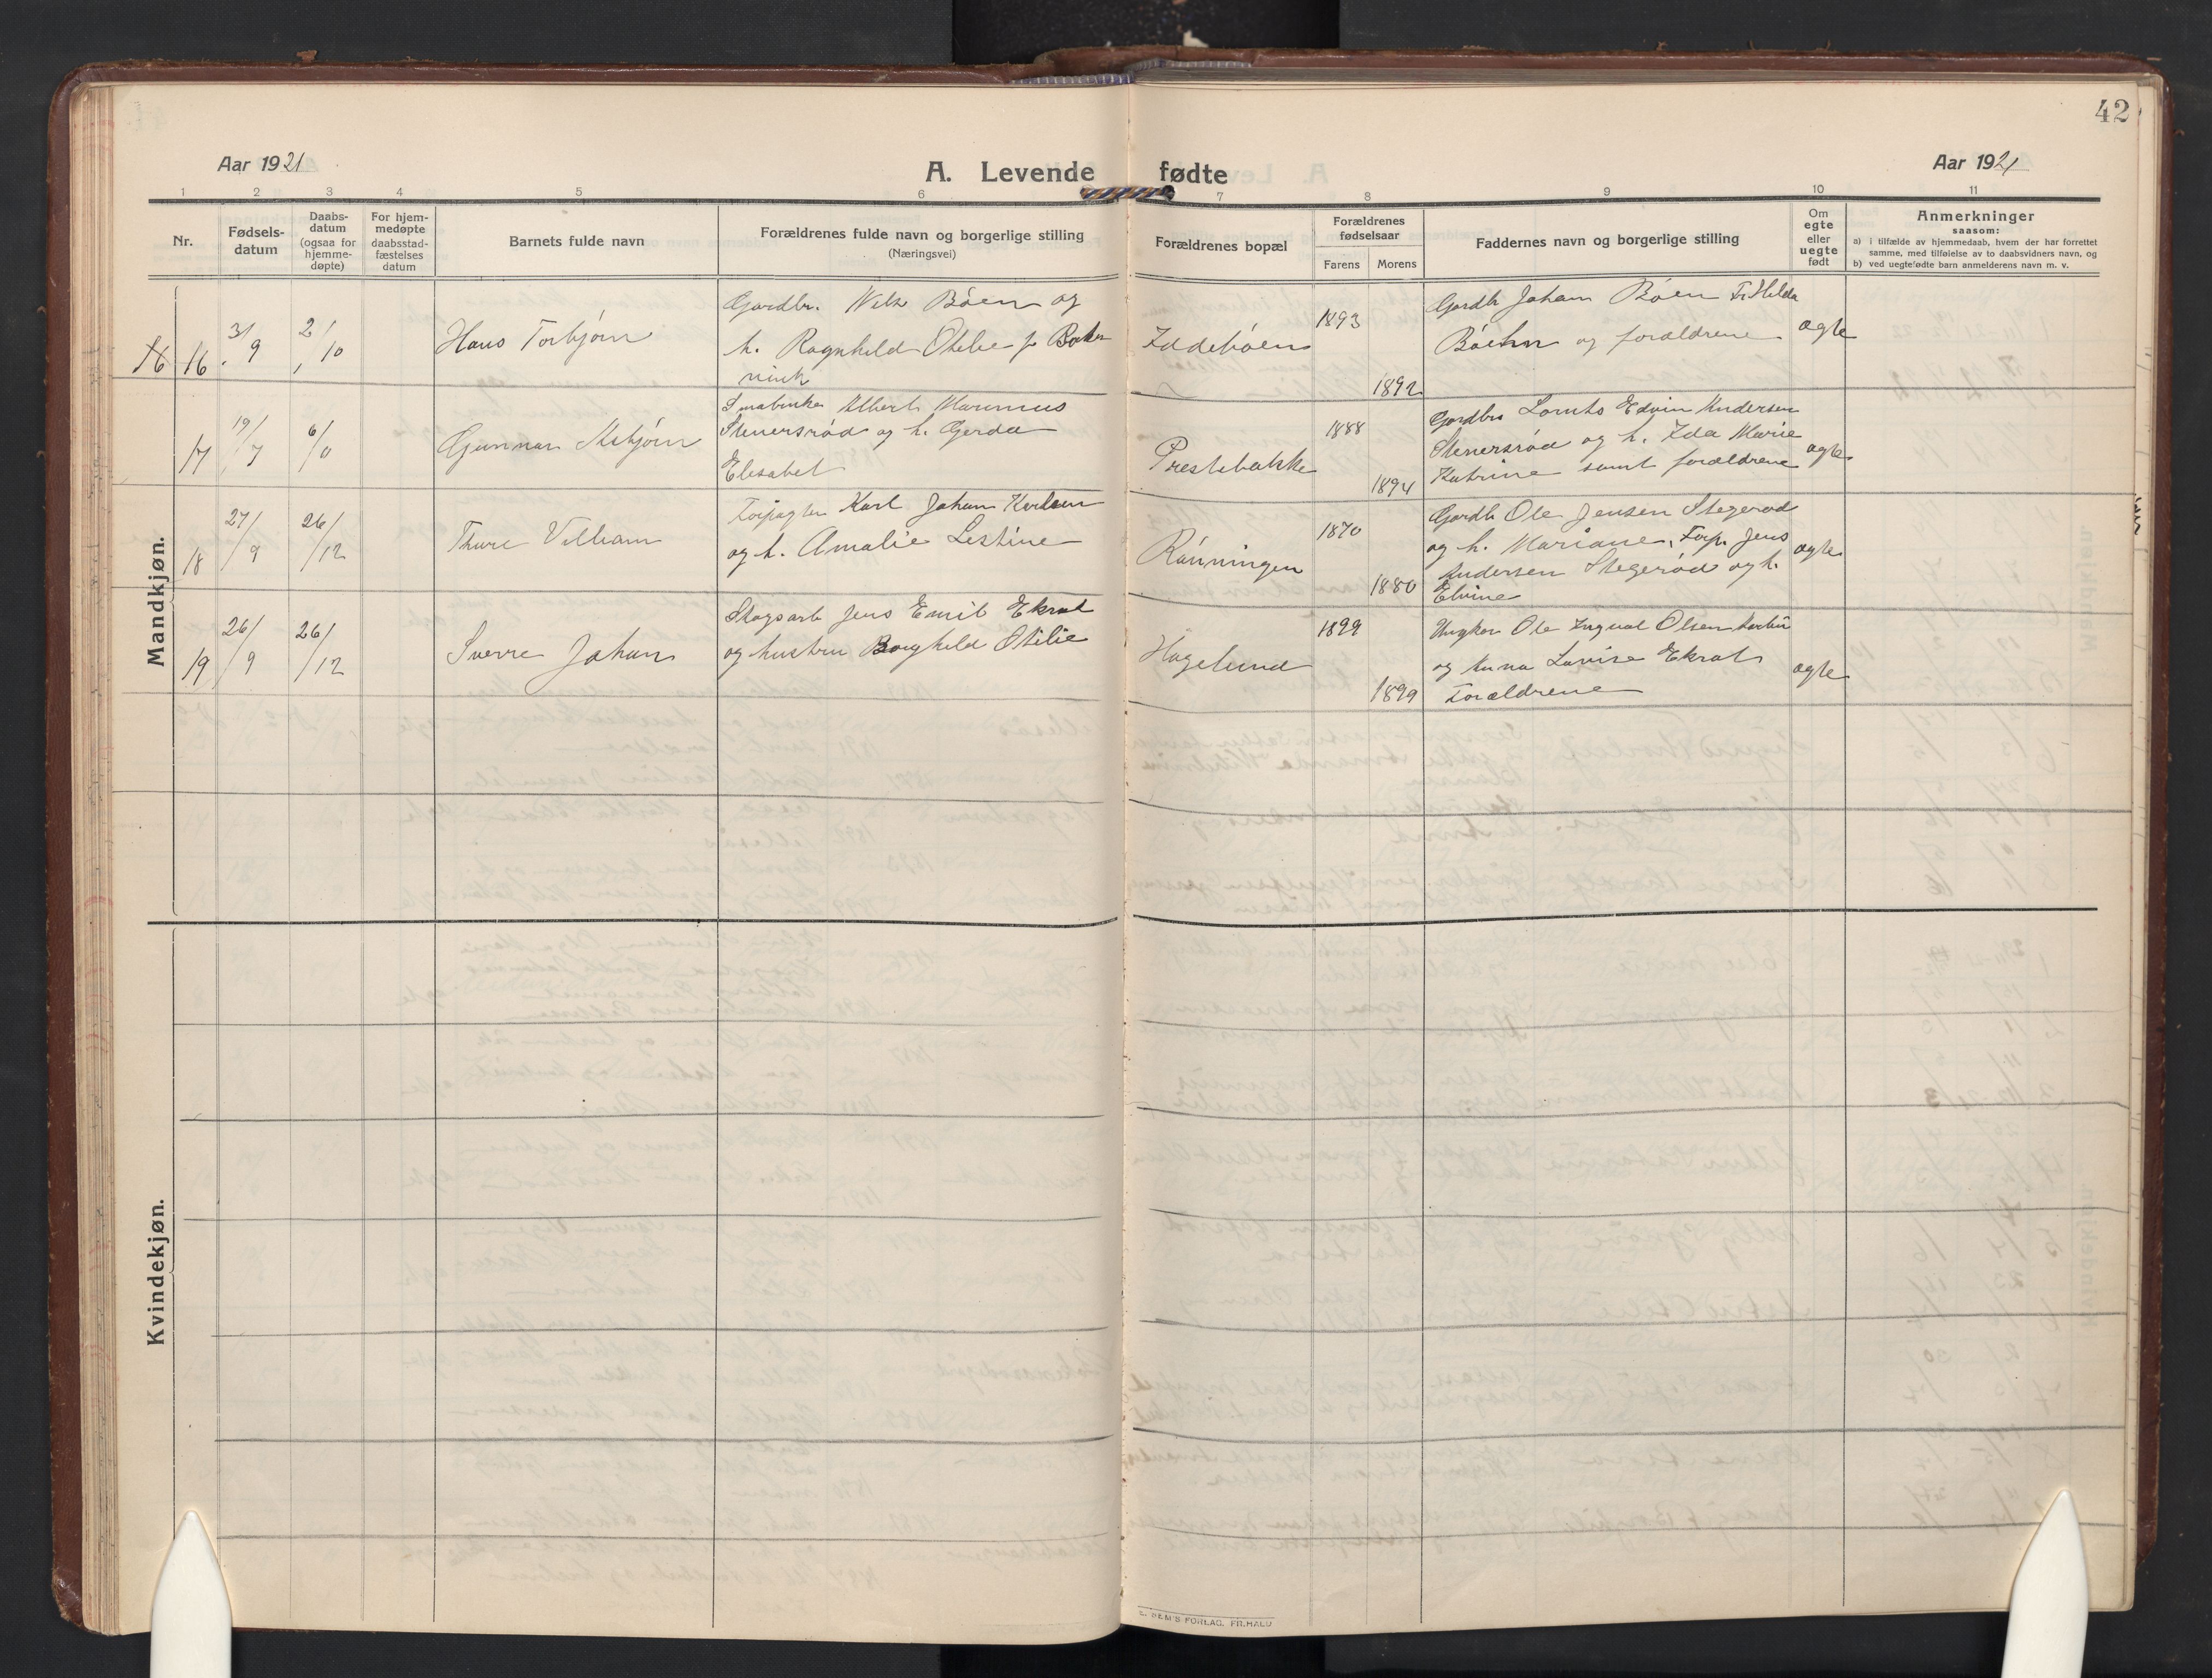 42
Aar 1921
A. Levende fødte
Aar 1921
1 2 3 4 5 6 7 8 9 10 11
Nr.
Fødsels-
datum
Daabs-
datum
(ogsaa for
hjemme-
døpte)
For hjem-
medøpte
daabsstad-
fæstelses
datum
Barnets fulde navn
Forældrenes fulde navn og borgerlige stilling
(Næringsvei)
Forældrenes bopæl
Forældrenes
fødselsaar
Farens Morens
Faddernes navn og borgerlige stilling
Om
egte
eller
uegte
født
Anmerkninger
saasom:
a) i tilfælde av hjemmedaab, hvem der har forrettet
samme, med tilføielse av to daabsvidners navn, og
b) ved uegtefødte barn anmelderens navn m. v.
Mandkjøn.
16 16 3/9 2/10
Hans Torbjørn
Gardbr. Nils Bøen og
h. Ragnhild Otelie f.
Iddebøen
1893
1892
Gardb Johan Bøen Fr Hilda
Bøehn og forældrene
ægte
17 19/7 6/
Gunnar Asbjørn
Smabruker Albert Marinius
Stenersrød og h. Gerda
Elisabet
Prestebakke
1888
1894
Gardbr Lornts Edvin Andersen
Stenersrød og h. Ida Marie
Katrine samt forældrene
ægte
18 27/9 26/12
Thure Villiam
Forpagter Karl Johan Karlsen
og h. Amalie Lestine
Rønningen
1870
1880
Gardb Ole Jensen Stegerød
og h. Mariane, Forp. Jens
Andersen Stegerød og h.
Elvine
ægte
19 26/9 26/12
Sverre Johan
Skogsarb Jens Emil Ekrat
og hustru Borghild Otilie
Hagelund
1899
1899
Ungkar Ole Ingval Olsen
og Anna Lovise Ekrat
Forældrene
ægte
Kvindekjøn.
E. SEM'S FORLAG. FR.HALD